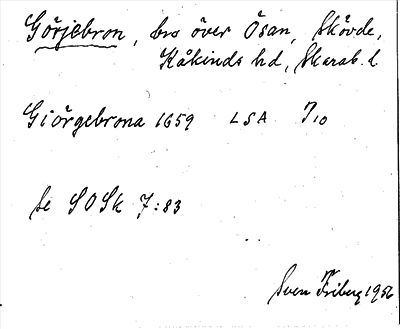 Görjebron, bro över Ösan, Skövde,
Kåkinds hd, Skarab. l.
Giörgebrona 1659 LSA P10
se SOSk 7:83
Sven Friberg 1956